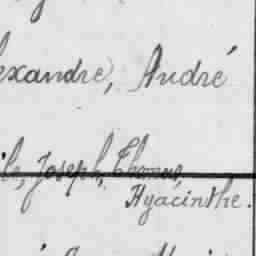 exandre, André
ile, Joseph, Thomas,
Hyacinthe.